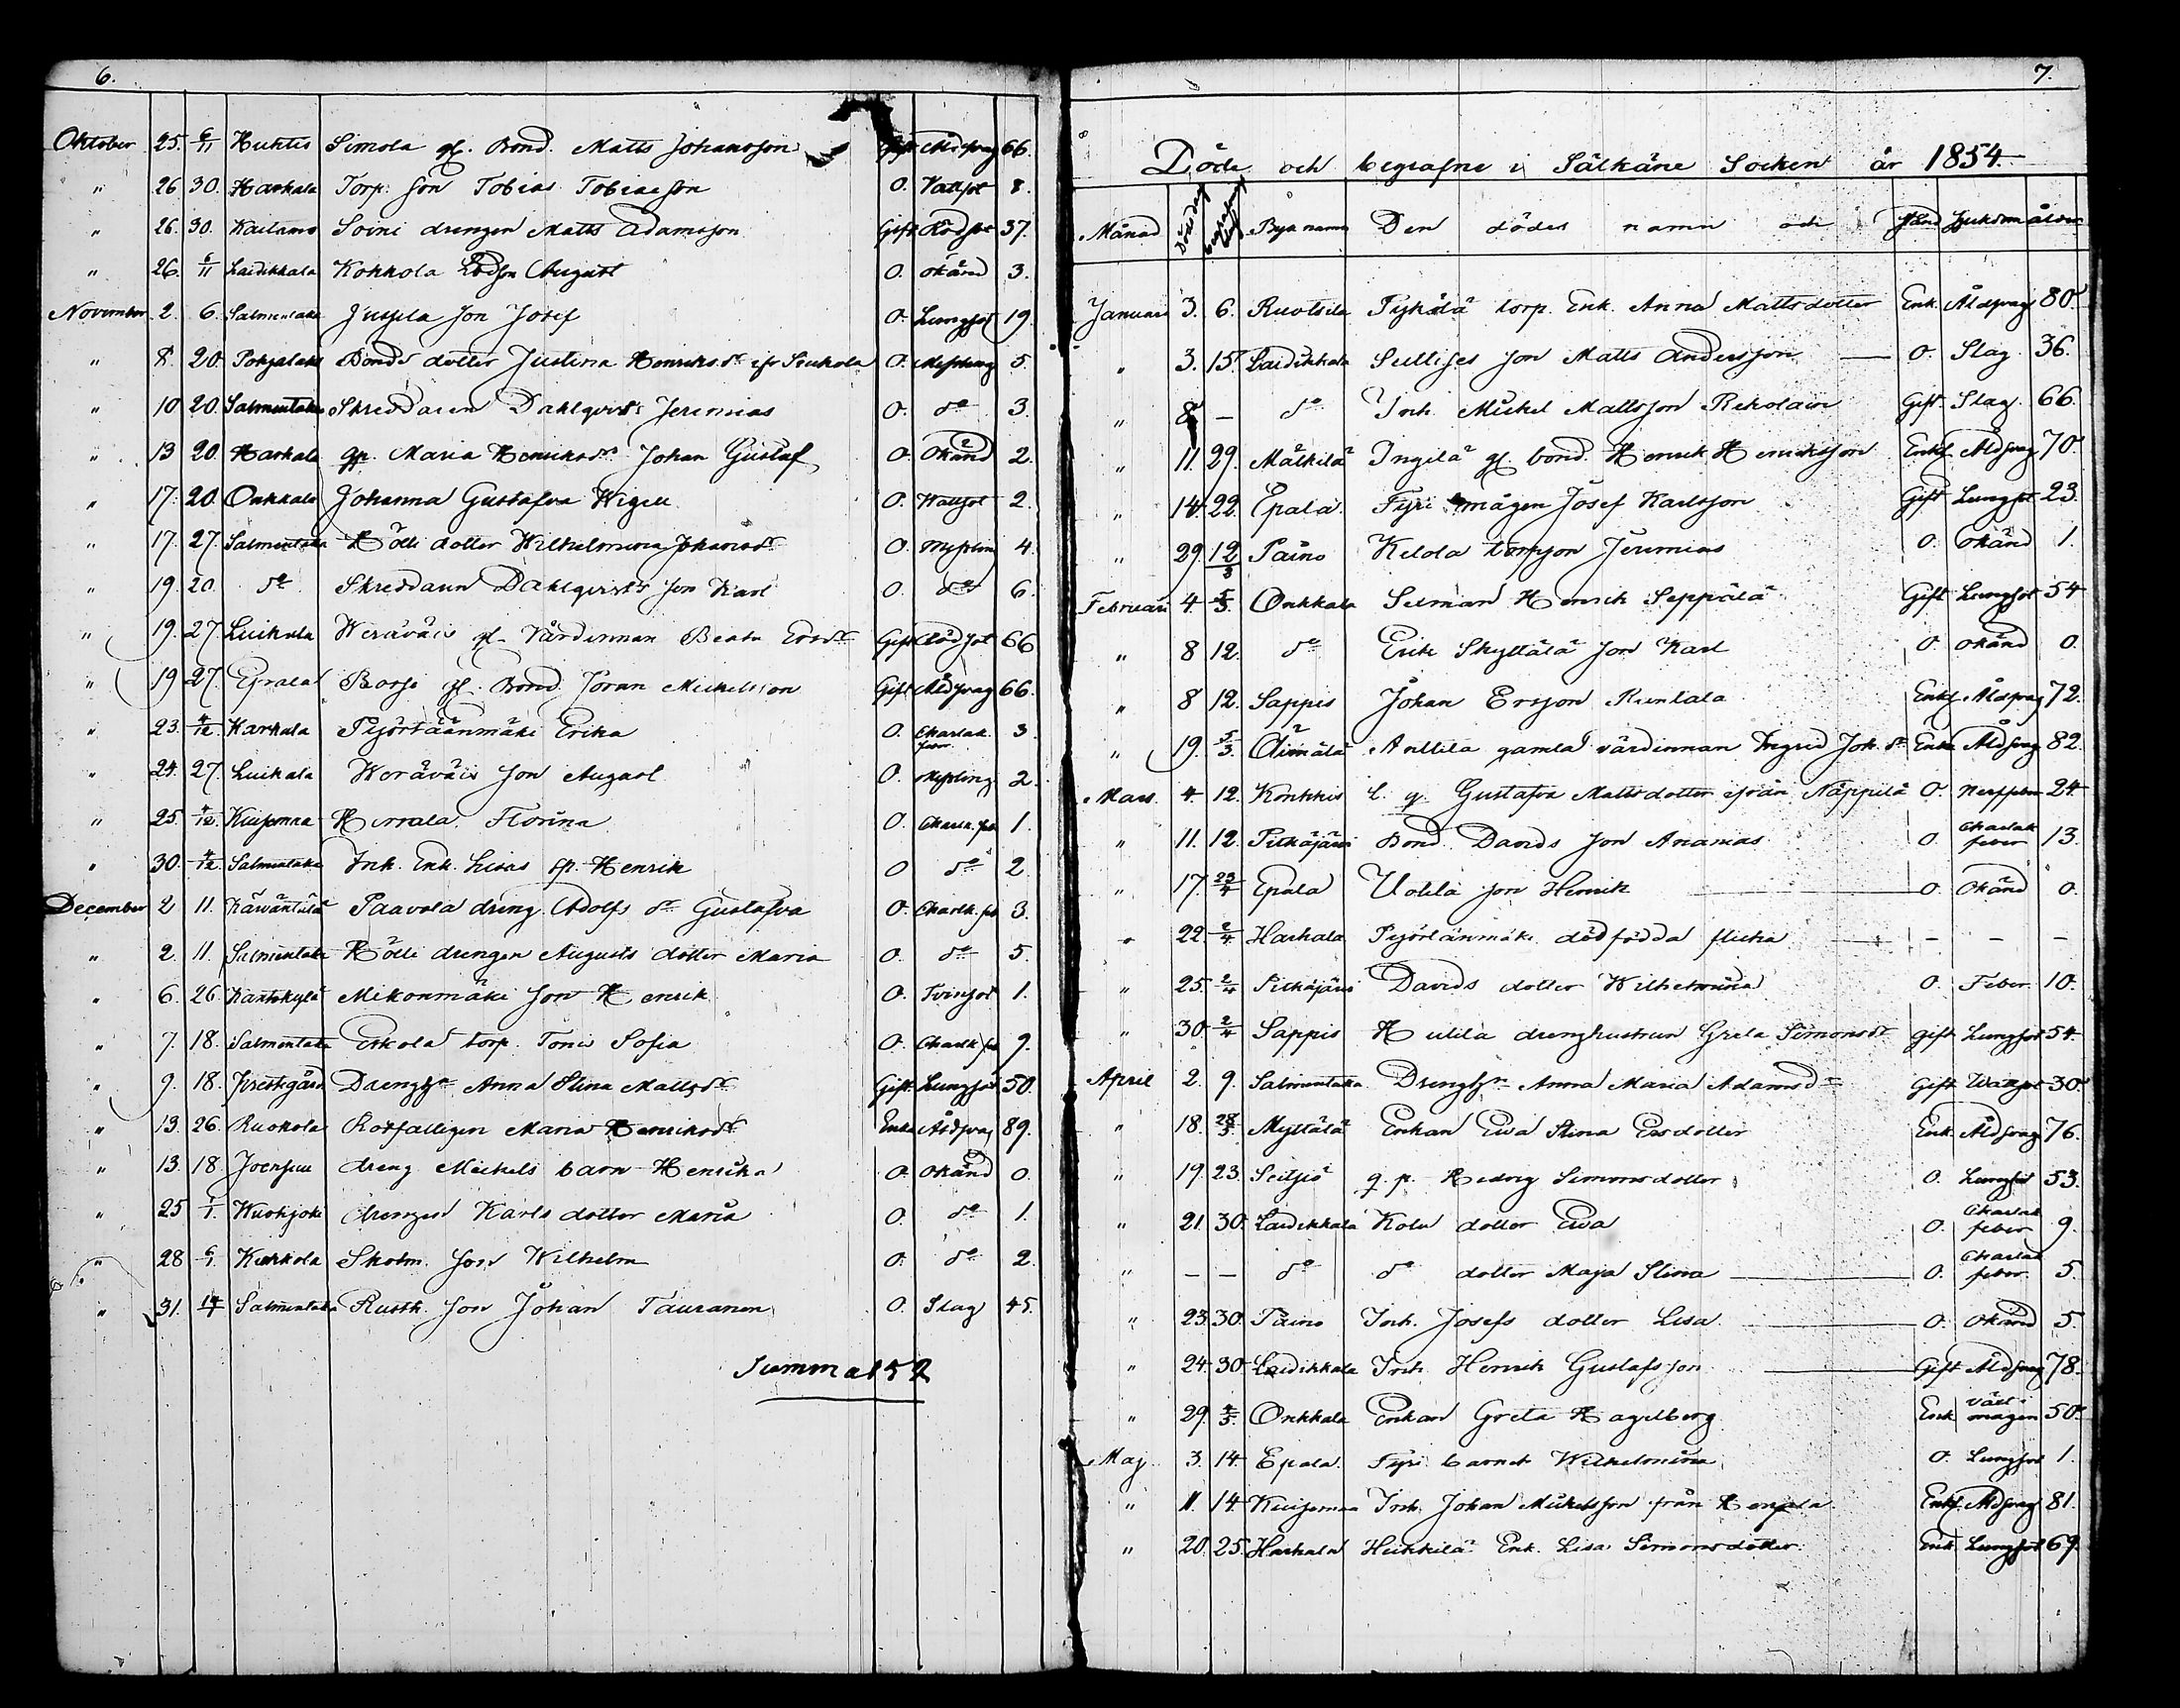 6.
Oktober 25. 6/11 Huhtis Simola gl. Bond. Matts Johansson Gift Åldsvag 66.
" 26 30. Harhala Torp. Son Tobias Tobiasson O. Vattsot 8.
" 26. 30. Kailamo Soini drengen Matts Adamsson Gift Rödsot 37.
" 26. 6/11 Laidikkala Kokkola Son August O. okänd 3.
November 2. 6. Salmentaka Jussila Son Josef O. Lungsot 19.
" 8. 20. Pohjalaks Bonds dotter Justina Henriksdr ifr Seukola O. Messling 5.
" 10 20. Salmentaka Skreddaren Dahlqvists Jeremias O. do 3.
" 13 20. Harhala qp. Maria Henriksdrs Johan Gustaf O. Okänd 2.
" 17. 20. Onkkala Johanna Gustafva Wigell O. Wattsot 2.
" 17. 27. Salmentaka Hölli dotter Wilhelmina Johansdr O. Messling 4.
" 19. 20. do Skreddaren Dahlqvists Son Karl O. do 6.
" 19. 27. Luikala Weräväis gl. Värdinnan Beata Ersdr Gift Rödsot 66
" 19 27. Epaala Borsi gl. Bond. Jöran Mickelsson Gift Åldsvag 66.
" 23. 4/12 Harhala Pyörtäänmäki Erika O. Charlak. feber 3.
" 24. 27. Luikala Weräväis Son August O. Messling 2.
" 25. 4/12. Kuisemaa Hirvala Florina O. Charlk. feb 1.
" 30. 4/12. Salmentaka Inh. Enk. Lisas sp. Henrik O do 2.
December 2 11. Kärväntälä Paavola dreng. Adolfs dr Gustafva O. Charlk. feb 3.
" 2. 11. Salmentaka Hölli drengen Augusts dotter Maria O. do 5.
" 6. 26. Kantokylä Mikonmäki Son Henrik O. Tvinsot 1.
" 7. 18. Salmentaka Eskola torp. Tonis Sofia O. Charlk feb 9.
" 9. 18. Prestegård Drenghn Anna Stina Mattsdr Gift. Lungsot 50.
" 13. 26. Ruokola Rotfattigen Maria Henriksdr Enka Åldsvag 89.
" 13. 18. Joensuu dreng Mickels barn Henrika O. Okänd 0.
" 25 1/1. Kuohjoki drengen Karls dotter Maria O. do 1.
" 28 6/1. Kerkola Skolm. Son Wilhelm O. do 2.
" 31. 14/1 Salmentaka Rusth. Son Johan Tauranen O. Slag 45.
Summa 152
7.
Döde och begrafne i Sälkäne Socken år 1854
Månad Dödsdag begrafnings dag Bya namn Den dödes namn och stånd Sjukdom ålder
Januari 3. 6. Ruotsila Pykälä torp. Enk. Anna Mattsdotter Enk. Åldsvag 80.
" 3. 15. Laidikkala Sullises Son Matts Andersson O. Slag 36.
" 8 – do Inh. Mickel Mattsson Rekolain Gift. Slag. 66.
" 11. 29. Mälkilä Ingilä gl. bond. Henrik Henriksson Enkl. Åldsvag 70.
" 14. 22. Epala. Fyri mågen Josef Karlsson Gift Lungsot 23.
" 29. 12/3 Päino Kelola torpson Jeremias O. Okänd 1.
Februari 4. 5/3. Onkkala Selman Henrik Seppälä Gift Lungsot 54
" 8 12. do Erik Skyttälä Son Karl O. okänd 0.
" 8 12. Sappis Johan Ersson Rintala Enkl Åldsvag 72.
" 19. 5/3. Äimälä Anttila gamla värdinnan Ingrid Joh. dr Enka Åldsvag 82.
Mars. 4. 12. Konkkis l. q. Gustafva Mattsdotter ifrån Näppilä O. Nerffeber 24.
" 11. 12. Pitkäjärvi Bond. Davids Son Ananias O. Charlak feber 13.
" 17. 23/4 Epala Uotila Son Henrik O. Okänd 0.
" 22. 2/4. Harhala Pyörtänmäki dödfödda flicka – – –
" 25. 2/4 Pitkäjärvi Davids dotter Wilhelmina O. Feber. 10.
" 30. 2/4 Sappis Hulila drenghustrun Greta Simonsdr gift Lungsot 54.
April 2. 9. Salmentaka Drenghn Anna Maria Adamsdr Gift Wattsot 30.
" 18. 28/5. Myttälä Enkan Ewa Stina Ersdotter Enk. Åldsvag 76.
" 19. 23. Seitjis q. p. Hedvig Simonsdotter O. Lungsot 53.
" 21. 30. Laidikkala Kolu dotter Ewa O. Charlak feber 9.
" – – do do dotter Maja Stina O. Charlak feber. 5.
" 23. 30. Päino Inh. Josefs dotter Lisa O. Okänd 5.
" 24. 30. Laidikkala Inh. Henrik Gustafsson Gift Åldsvag 78.
" 29. 4/5. Onkkala Enkan Greta Hagelberg Enk. värk i magen 50.
Maj 3. 14. Epala. Fyri barnet Wilhelmina O. Lungsot 1.
" 11. 14. Kuisemaa Inh. Johan Mickelsson från Hempla Enkl. Åldsvag 81.
" 20. 25. Harhala Heikkilä Enk. Lisa Simonsdotter. Enk Lungsot 69.